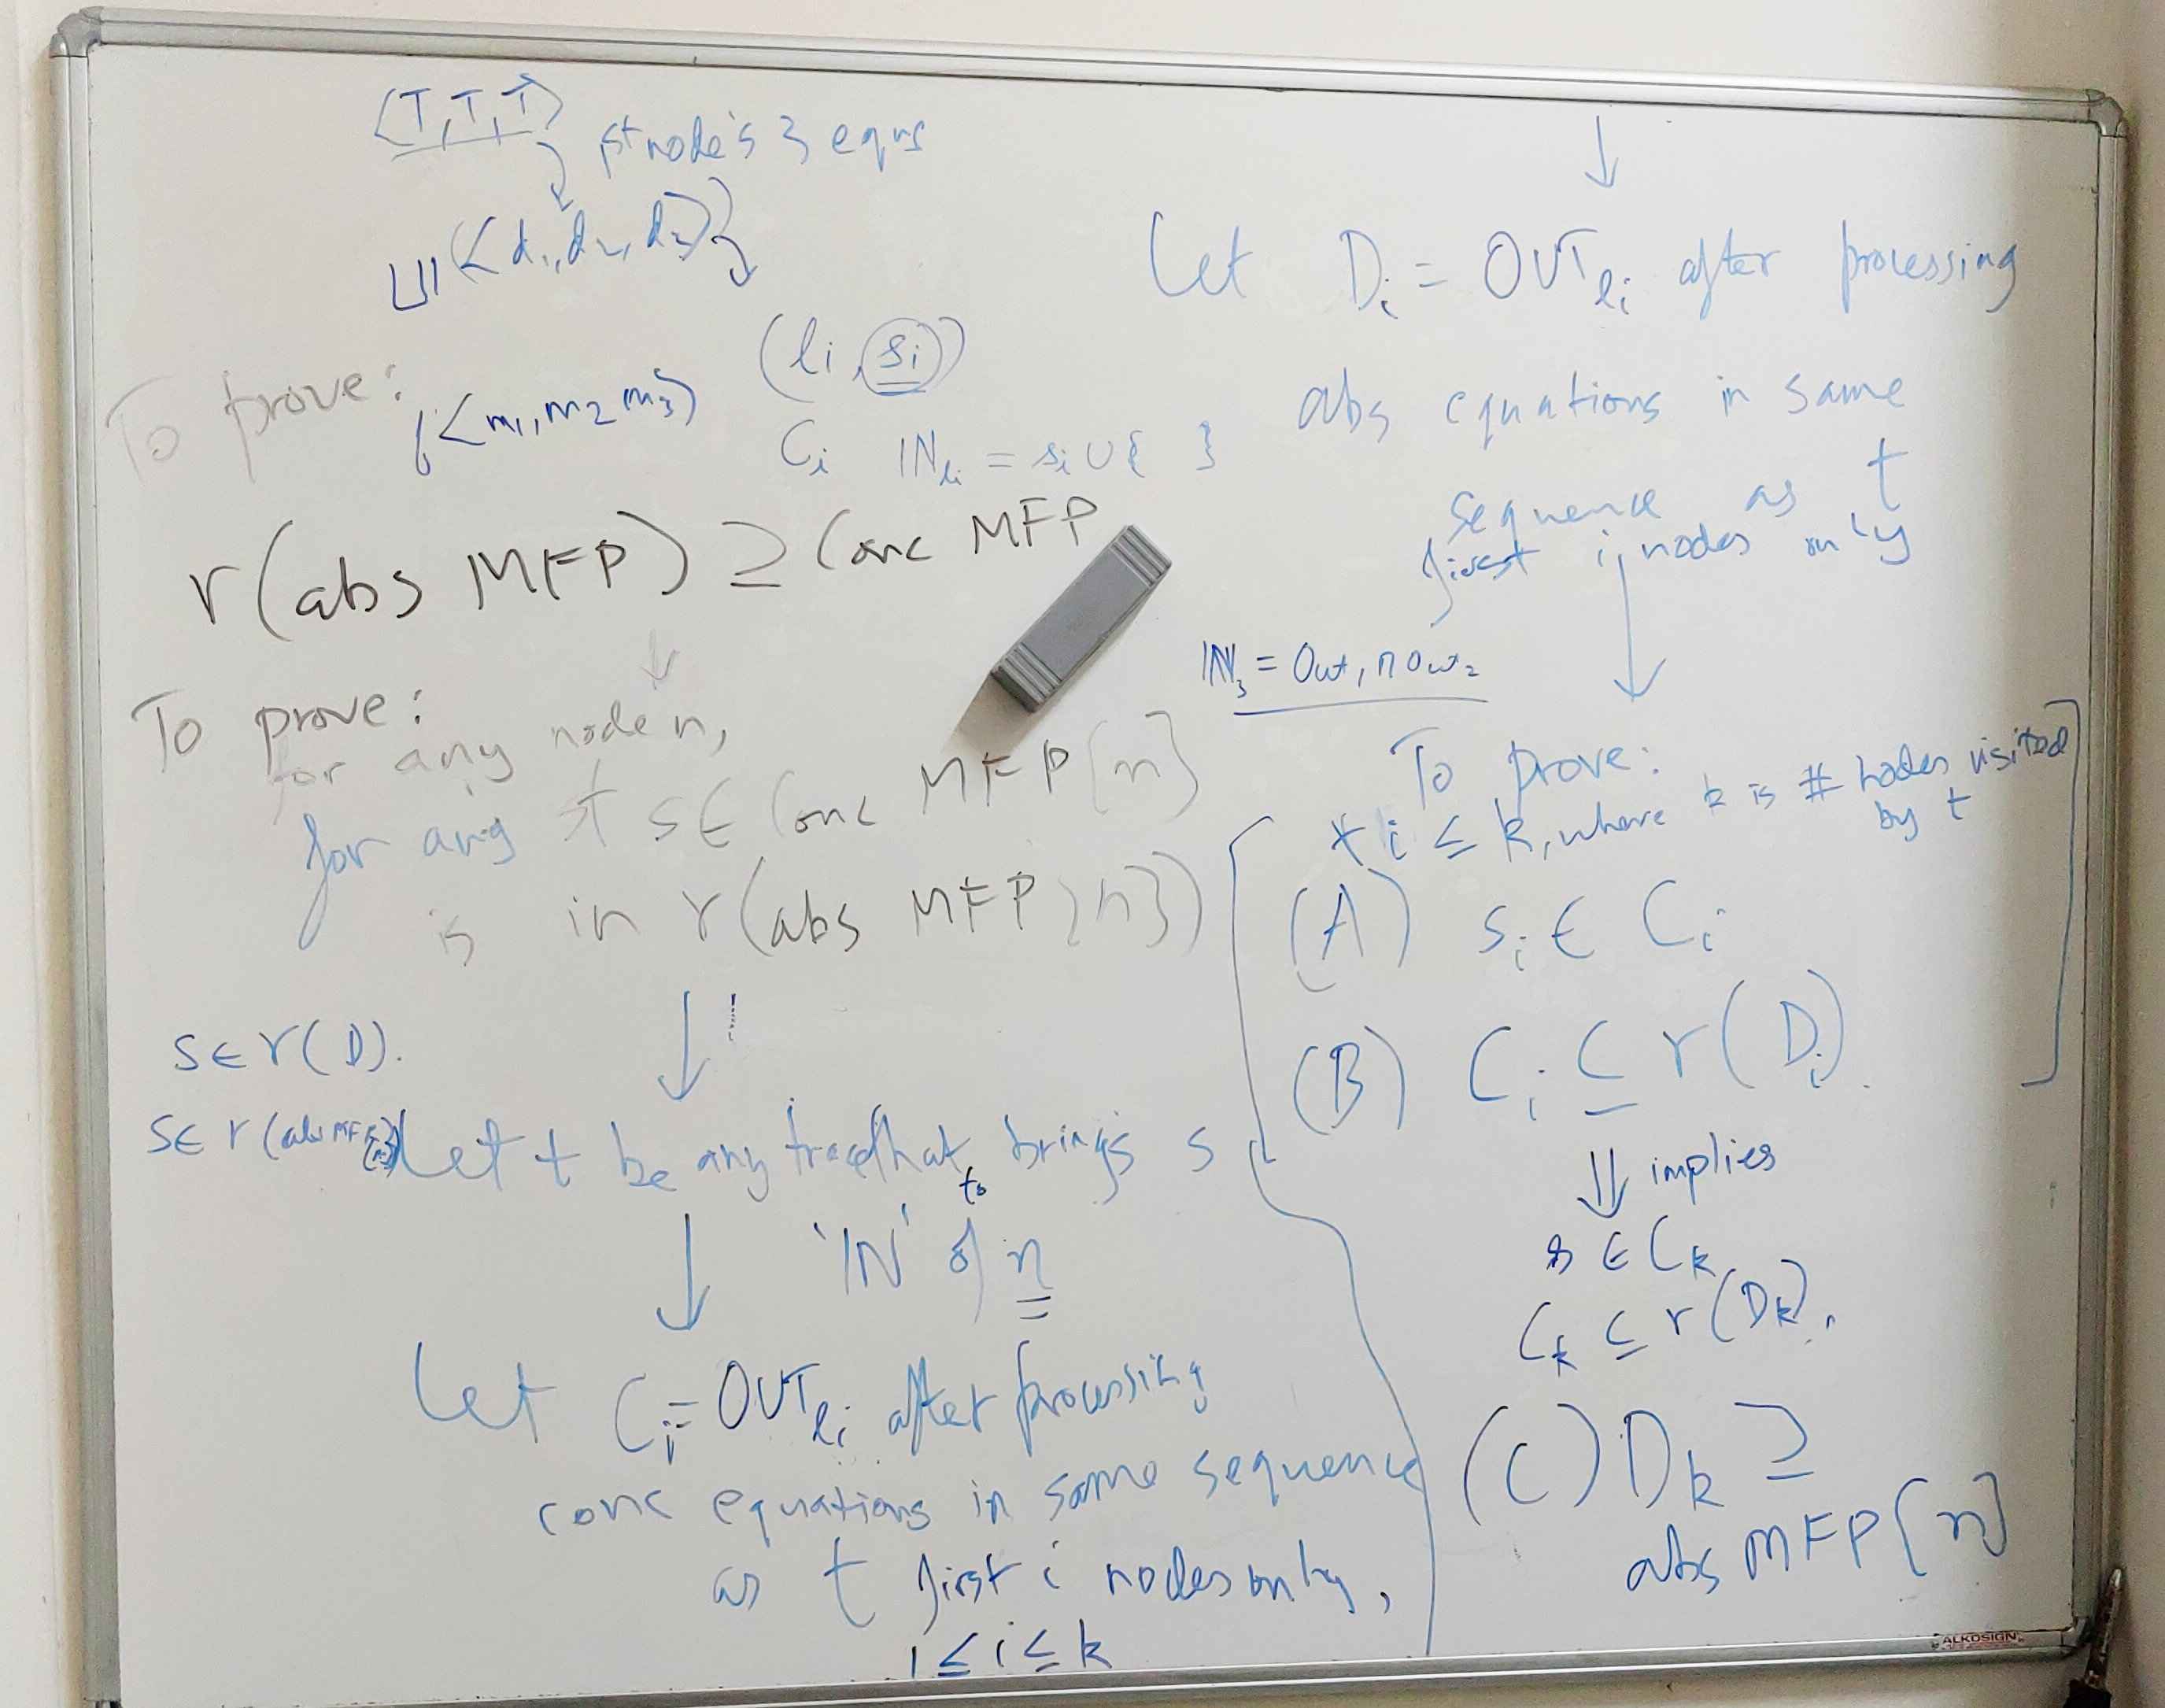 ⟨T, T, T⟩
1st node's 3 eqns
⊔| {⟨d1, d2, d3⟩}
To prove:
⟨m1, m2 m3⟩
(li, si)
Ci INli = si ∪ { }
r(abs MFP) ⊇ Conc MFP
To prove:
for any node n,
for any st s ∈ Conc MFP[n]
is in r(abs MFP[n])
s ∈ r(D).
s ∈ r(abs MFP[n])
Let t be any trace that brings s
to
'IN' of n
Let Ci = OUTli after processing
conc equations in same sequence
as t first i nodes only,
1 ≤ i ≤ k
Let Di = OUTli after processing
abs equations in same
sequence as t
first i nodes only
IN3 = Out1 ⊓ Out2
To prove:
∀ i ≤ k, where k is # nodes visited
by t
(A) si ∈ Ci
(B) Ci ⊆ r(Di).
⇓ implies
s ∈ Ck
Ck ⊆ r(Dk).
(C) Dk ⊇
abs MFP[n]
ALKOSIGN